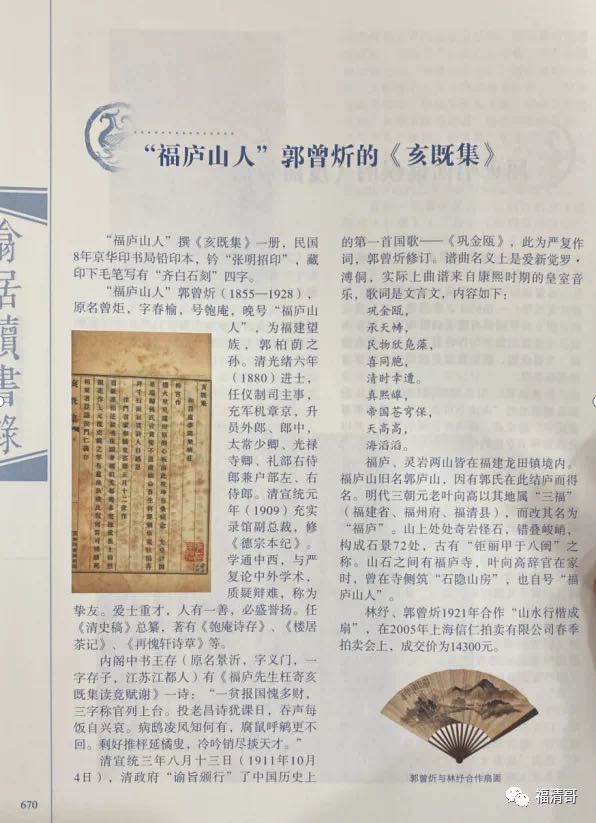 “福庐山人”郭曾炘的《亥既集》
翕居讀書錄
“福庐山人”撰《亥既集》一册，民国
8年京华印书局铅印本，钤“张明招印”，藏
印下毛笔写有“齐白石刻”四字。
“福庐山人”郭曾炘（1855—1928），
原名曾炬，字春榆，号匏庵，晚号“福庐山
人”，为福建望
族，郭柏荫之
孙。清光绪六年
（1880）进士，
任仪制司主事，
充军机章京，升
员外郎、郎中，
太常少卿、光禄
寺卿、礼部右侍
郎兼户部左、右
侍郎。清宣统元
年（1909）充实
录馆副总裁，修
《德宗本纪》。
学通中西，与严
复论中外学术，
质疑辩难，称为
挚友。爱士重才，人有一善，必盛誉扬。任
《清史稿》总纂，著有《匏庵诗存》、《楼居
茶记》、《再愧轩诗草》等。
内阁中书王存（原名景沂，字义门，一
字存子，江苏江都人）有《福庐先生枉寄亥
既集读竟赋谢》一诗：“一贫报国愧多财，
三字称官列上台。投老昌诗犹课日，吞声每
饭自兴哀。病鸱凌风知何有，腐鼠呼鹓更不
回。剩好推枰延橘叟，冷吟销尽掞天才。”
清宣统三年八月十三日（1911年10月
4日），清政府“谕旨颁行”了中国历史上
的第一首国歌——《巩金瓯》，此为严复作
词，郭曾炘修订。谱曲名义上是爱新觉罗·
溥侗，实际上曲谱来自康熙时期的皇室音
乐，歌词是文言文，内容如下：
巩金瓯，
承天帱，
民物欣凫藻，
喜同胞，
清时幸遭。
真熙皞，
帝国苍穹保，
天高高，
海滔滔。
福庐、灵岩两山皆在福建龙田镇境内。
福庐山旧名郭庐山，因有郭氏在此结庐而得
名。明代三朝元老叶向高以其地属“三福”
（福建省、福州府、福清县），而改其名为
“福庐”。山上处处奇岩怪石，错叠峻峭，
构成石景72处，古有“钜丽甲于八闽”之
称。山石之间有福庐寺，叶向高辞官在家
时，曾在寺侧筑“石隐山房”，也自号“福
庐山人”。
林纾、郭曾炘1921年合作“山水行楷成
扇”，在2005年上海信仁拍卖有限公司春季
拍卖会上，成交价为14300元。
亥既集
郭曾炘与林纾合作扇面
670
福清哥